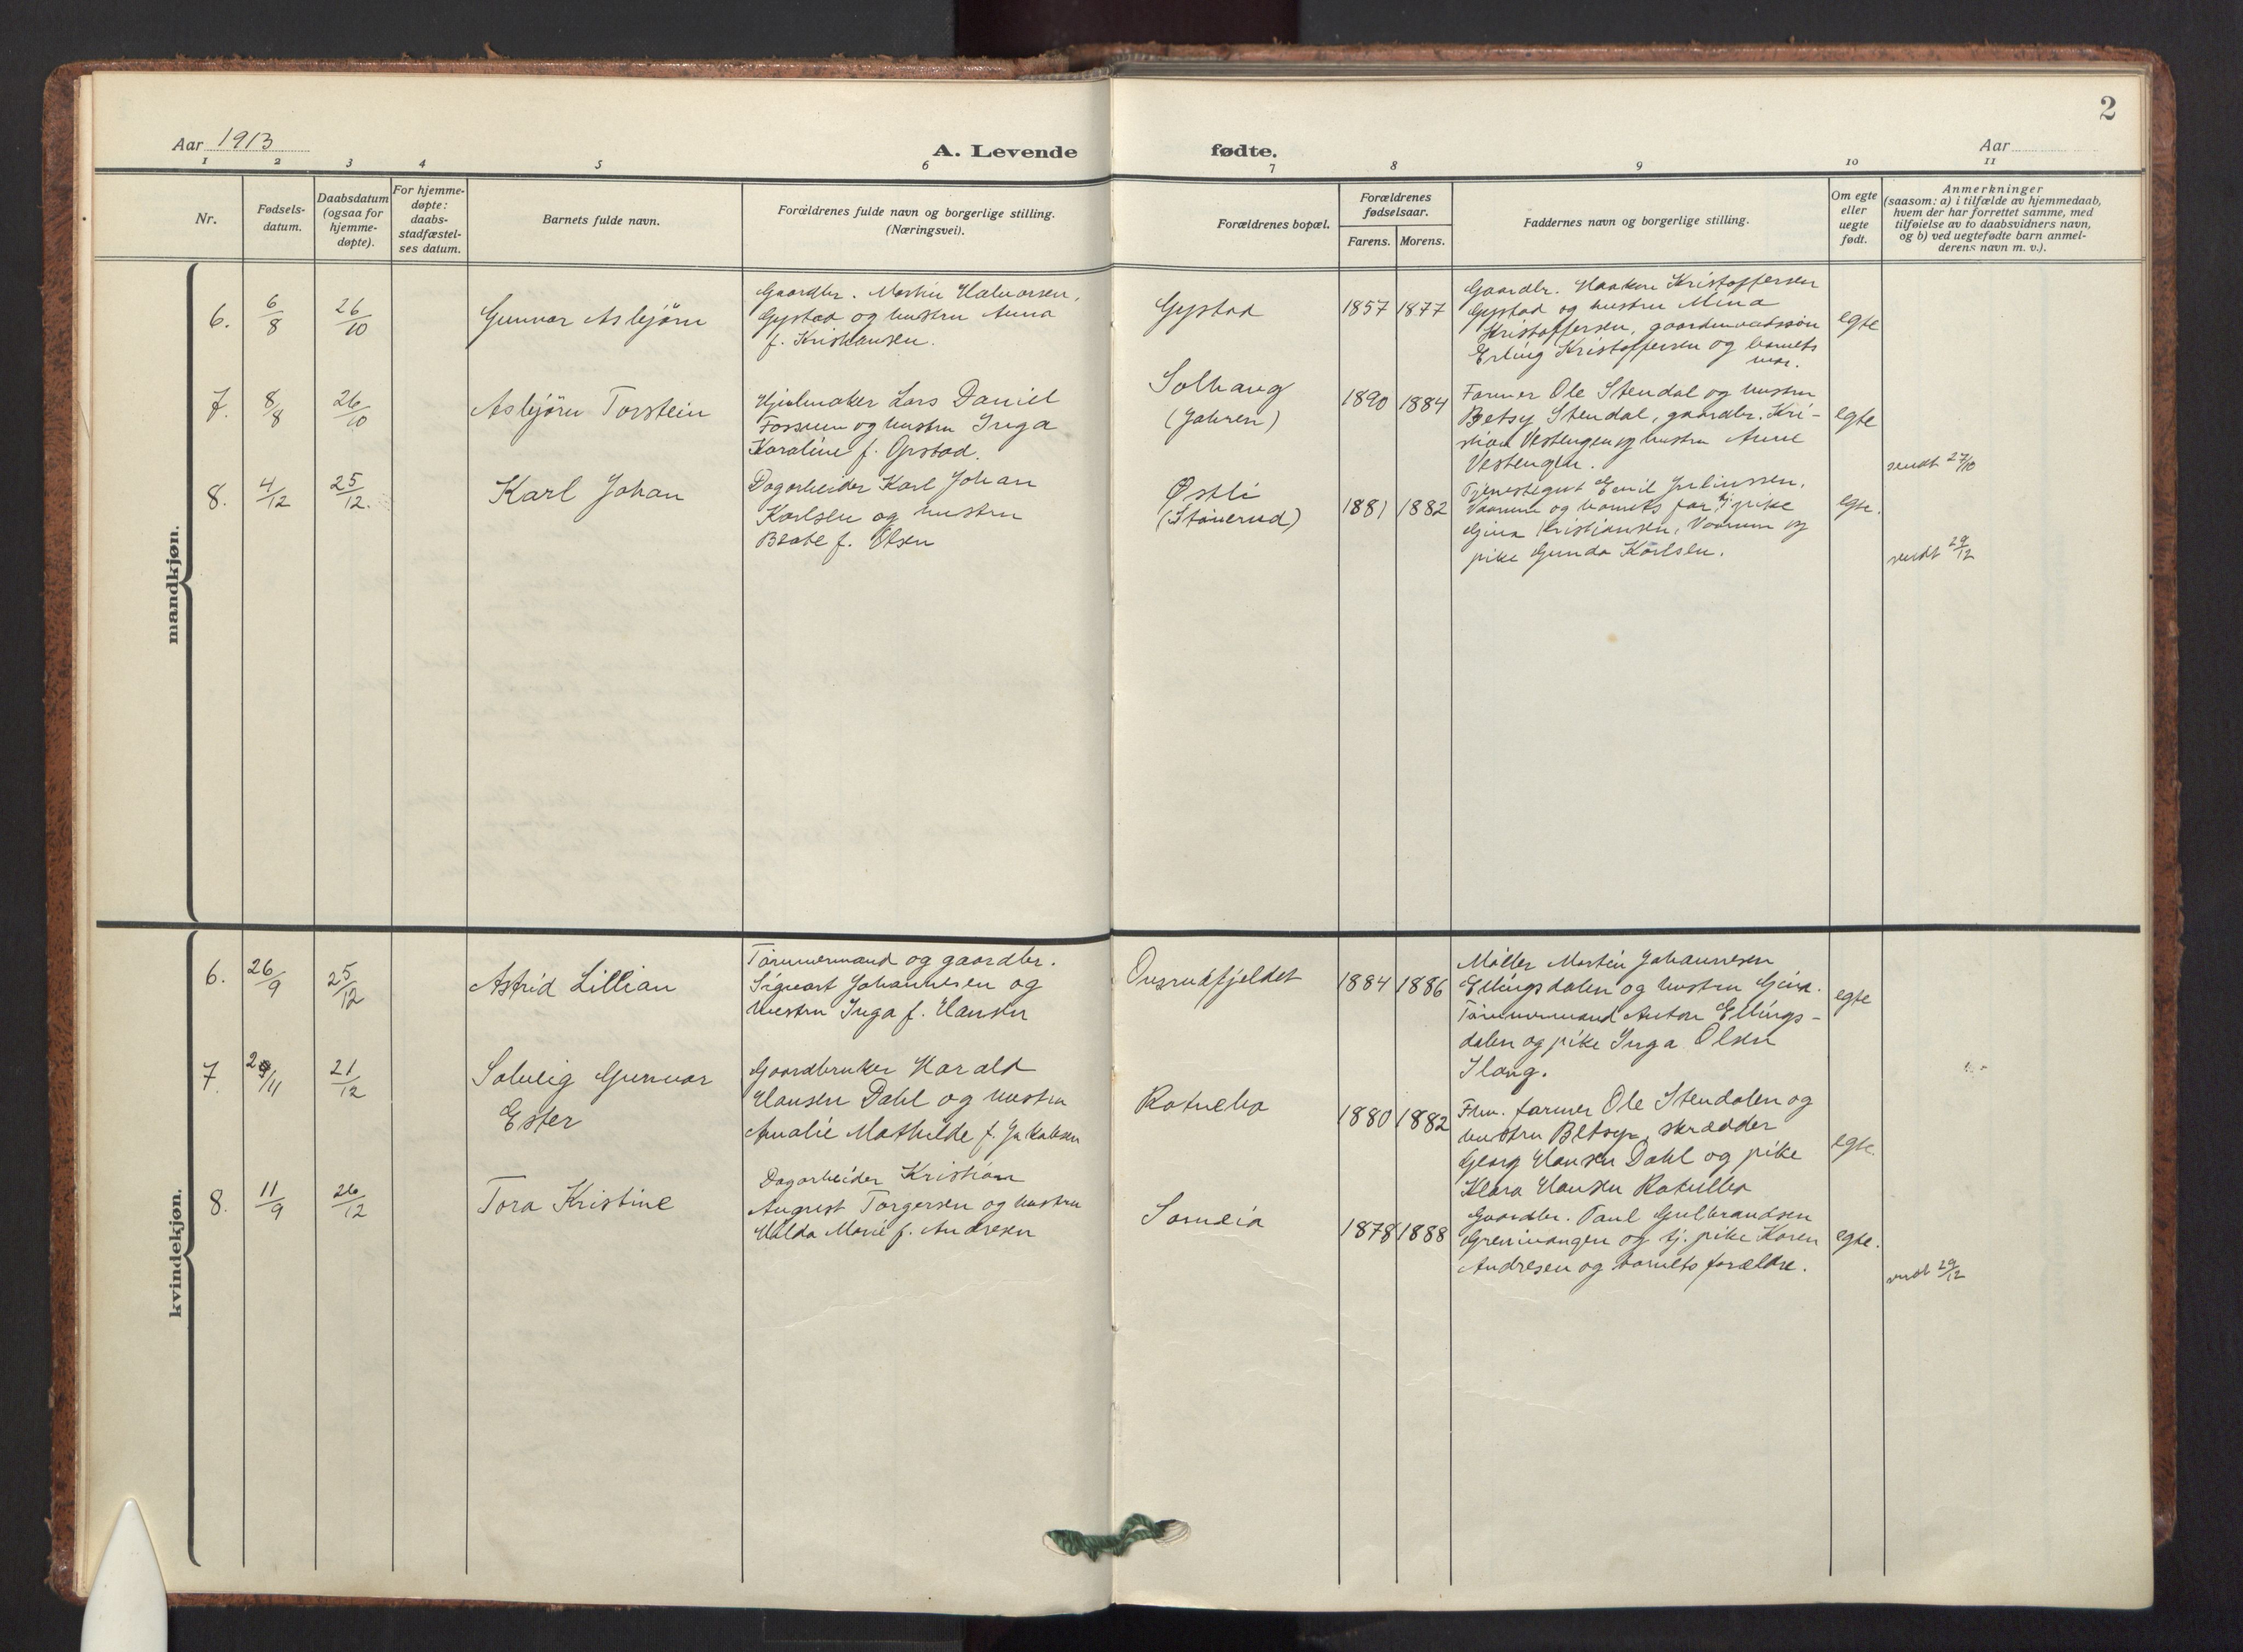 2
Aar 1913
A. Levende fødte.
Aar
1 2 3 4 5 6 7 8 9 10 11
Nr.
Fødsels-
datum.
Daabsdatum
(ogsaa for
hjemme-
døpte).
For hjemme-
døpte:
daabs-
stadfæstel-
ses datum.
Barnets fulde navn.
Forældrenes fulde navn og borgerlige stilling.
(Næringsvei).
Forældrenes bopæl.
Forældrenes
fødselsaar.
Farens. Morens.
Faddernes navn og borgerlige stilling.
Om egte
eller
uegte
født.
Anmerkninger
(saasom: a) i tilfælde av hjemmedaab,
hvem der har forrettet samme, med
tilføielse av to daabsvidners navn,
og b) ved uegtefødte barn anmel-
derens navn m. v.).
mandkjøn.
6.
6/8
26/10
Gunvar Asbjörn
Gaardbr. Martin Halvorsen,
Gystad og hustru Anna
f. Kristiansen.
Gystad
1857
1877
Gaardbr. Haakon Kristoffersen
Gystad og hustru Mina
Kristoffersen, gaardmandssön
Erling Kristoffersen og barnets
mor.
egte
7.
8/8
26/10
Asbjörn Torstein
Hjulmaker Lars Daniel
Fossum og hustru Inga
Karoline f. Opstad.
Solhaug
(Jahren)
1890
1884
Farmer Ole Stendal og hustru
Betsy Stendal, gaardbr. Kri-
stian Vestengen og hustru Anne
Vestengen.
egte
sendt 27/10
8.
4/12
25/12.
Karl Johan
Dagarbeider Karl Johan
Karlsen og hustru
Beate f. Olsen
Østli
(Stönerud)
1881
1882
Tjenestegut Emil Juliussen,
Vaarum og barnets far, tj. pike
Gina Kristiansen, Vaarum og
pike Gunda Karlsen.
egte.
sendt 29/12
kvindekjøn.
6.
26/9
25/12
Astrid Lillian
Tömmermand og gaardbr.
Sigvart Johannesen og
hustru Inga f. Hansen
Onsrudfjeldet
1884
1886
Möller Martin Johannesen
Ellingsdalen og hustru Gina.
Tömmermand Anton Ellings-
dalen og pike Inga Olsen
Ilaug.
egte
7.
29/11
21/12
Solveig Gunvor
Ester
Gaardbruker Harald
Hansen Dahl og hustru
Amalie Mathilde f. Jakobsen
Ratnebø
1880
1882
Fhv. farmer Ole Stendalen og
hustru Betsy, skrædder
Georg Hansen Dahl og pike
Klara Hansen
egte.
8.
11/9
26/12
Tora Kristine
Dagarbeider Kristian
August Torgersen og hustru
Hilda Marie f. Andresen
1878
1888
Gaardbr. Paul Gulbrandsen
Grenivangen og tj. pike Karen
Andresen og barnets forældre.
egte.
sendt 29/12